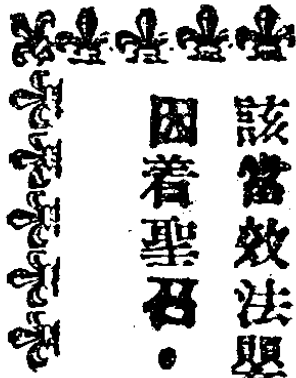 該當效法
因着聖召・